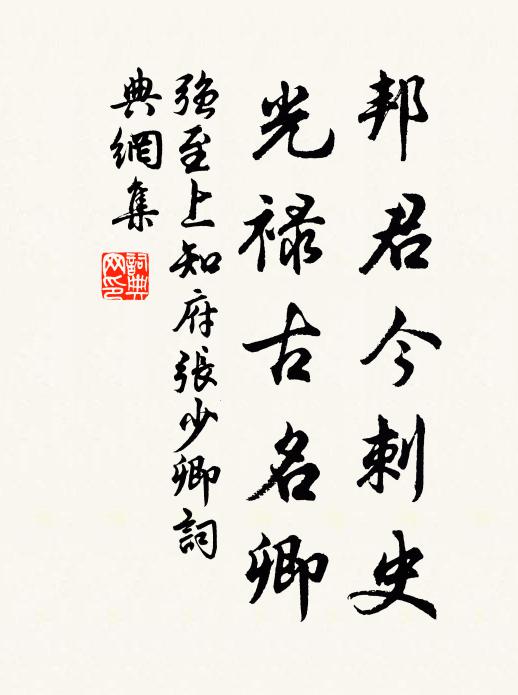 邦君今刺史
光禄古名卿
強至上知府張少卿詞
典網集
詞典網印